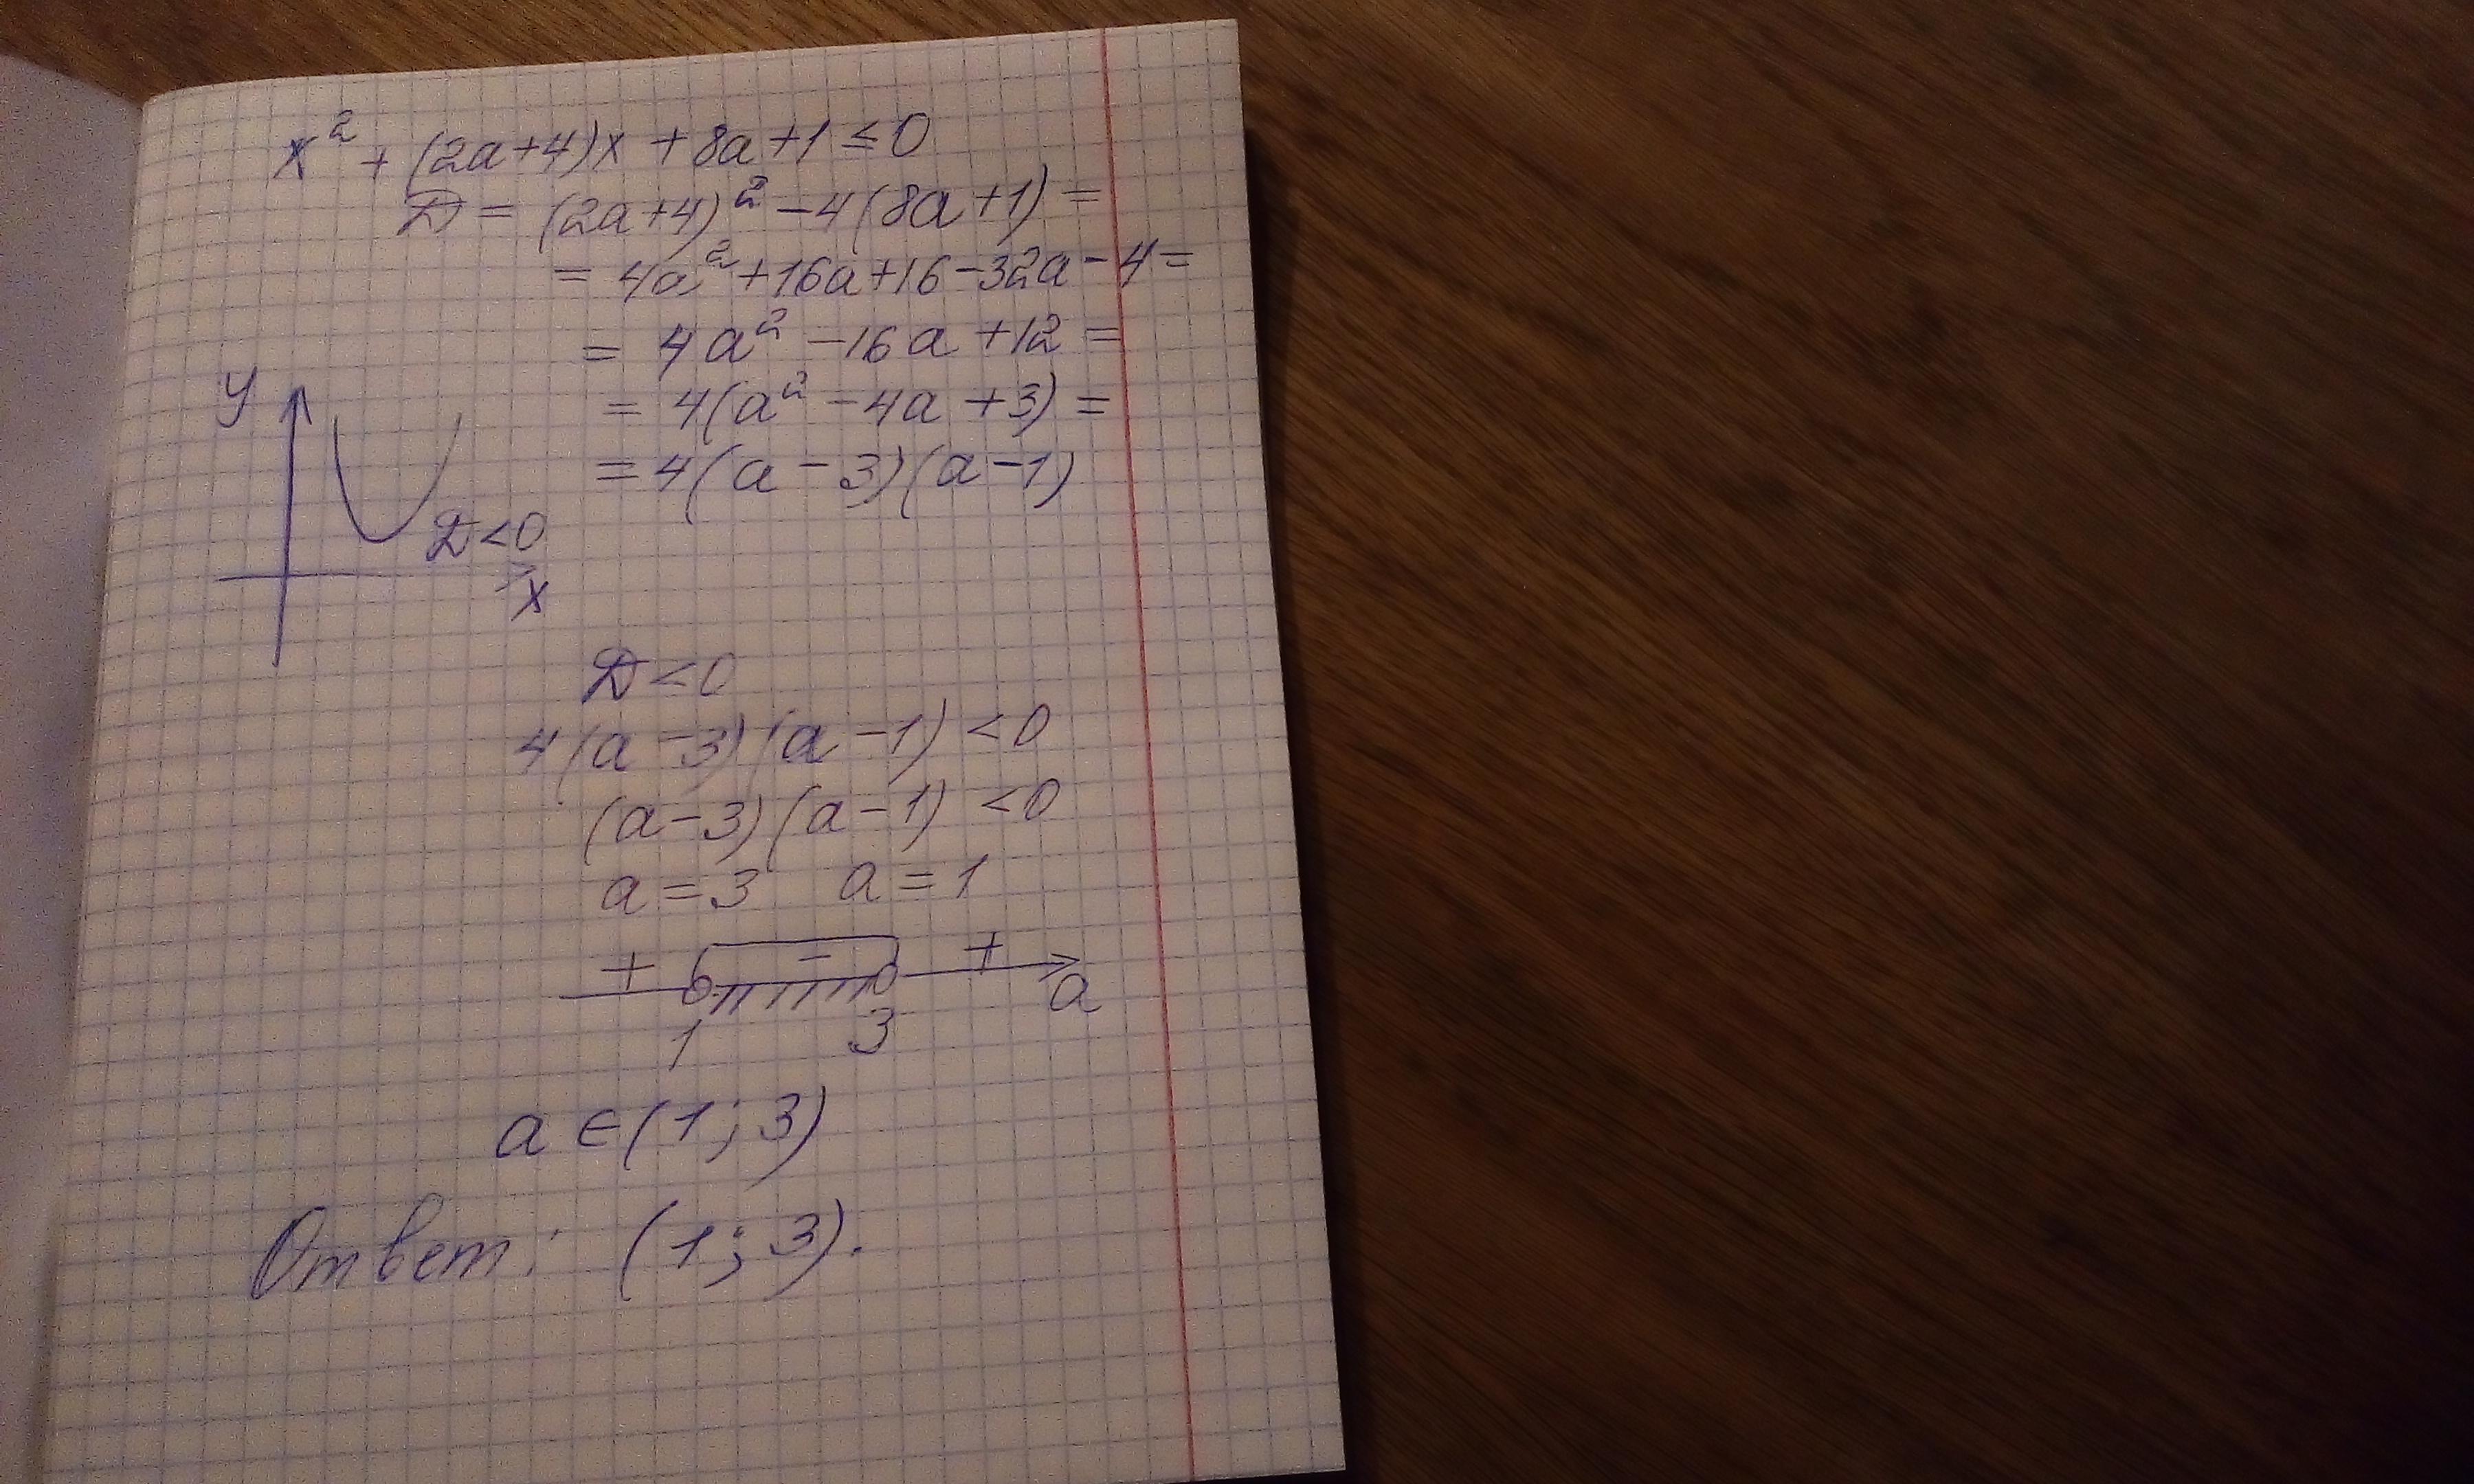 x² + (2a+4)x + 8a+1 ≤ 0
D = (2a+4)² - 4(8a+1) =
= 4a² + 16a + 16 - 32a - 4 =
= 4a² - 16a + 12 =
= 4(a² - 4a + 3) =
= 4(a-3)(a-1)
y
D<0
x
D<0
4(a-3)(a-1) <0
(a-3)(a-1) <0
a=3 a=1
+ - +
a
1 3
a ∈ (1; 3)
Ответ: (1; 3).